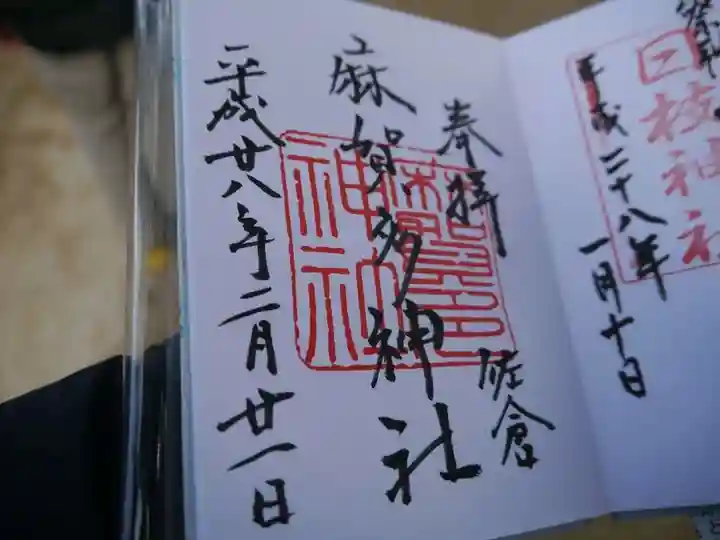 日枝神社
平成二十八年
一月十日
奉拝
佐倉
麻賀多神社
平成廿八年二月廿一日